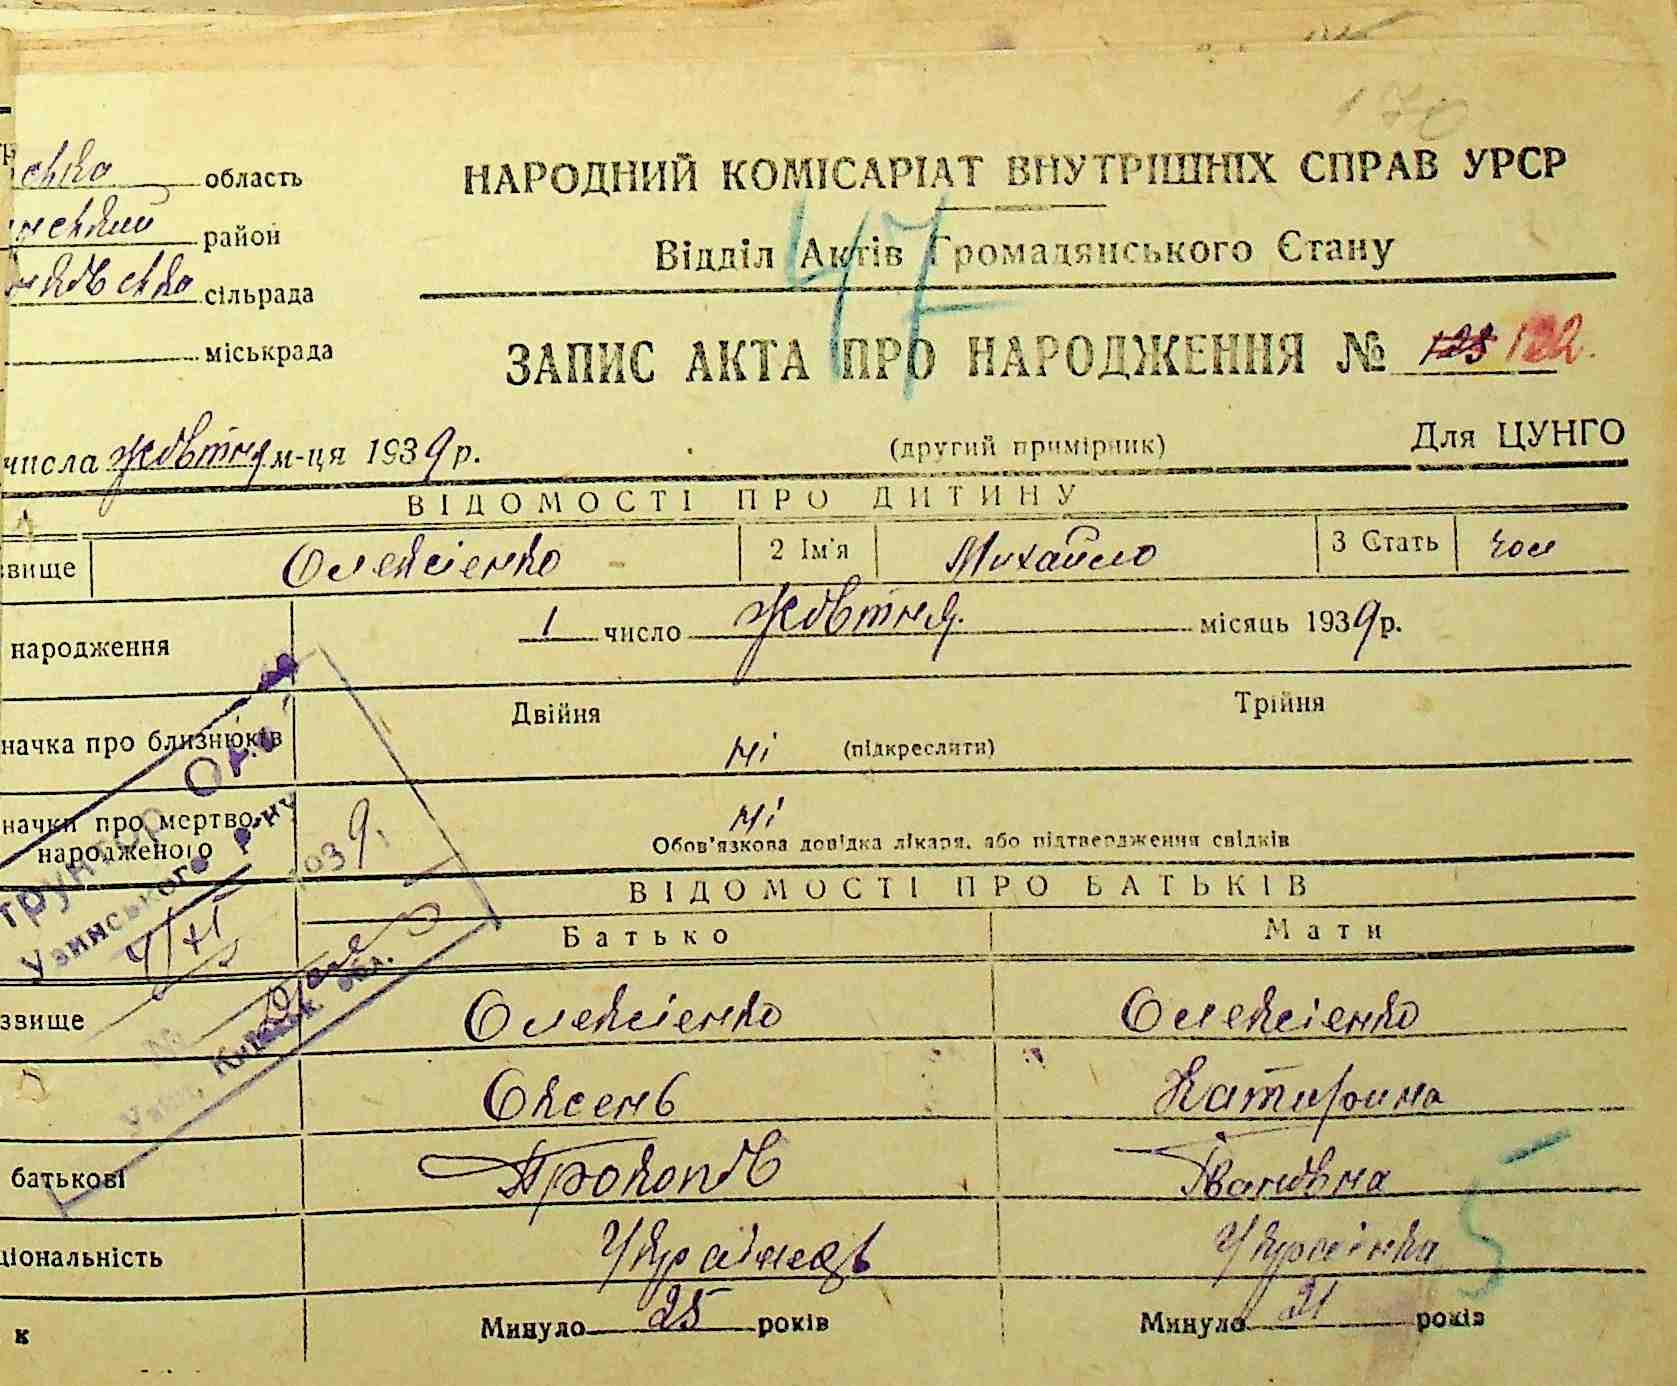 170
НАРОДНИЙ КОМІСАРІАТ ВНУТРІШНІХ СПРАВ УРСР
ська область
нський район
сільрада
міськрада
Відділ Актів Громадянського Стану
47
ЗАПИС АКТА ПРО НАРОДЖЕННЯ № 123 122.
числа жовтня м-ця 1939 р.
(другий примірник)
Для ЦУНГО
ВІДОМОСТІ ПРО ДИТИНУ
звище Олексієнко 2 Ім'я Михайло 3 Стать чол
народження 1 число жовтня місяць 1939 р.
Двійня Трійня
начка про близнюків ні (підкреслити)
начки про мертво-народженого ні
Обов'язкова довідка лікаря, або підтвердження свідків
ВІДОМОСТІ ПРО БАТЬКІВ
Батько Мати
звище Олексієнко Олексієнко
Оксень Катирина
батькові Прокопів Івановна
ціональність Українець Українка
к Минуло 25 років Минуло 21 років
трунтор ОАГС
Узинського р-ну
4/XI 1939 р.
№
Узин, Київськ обл.